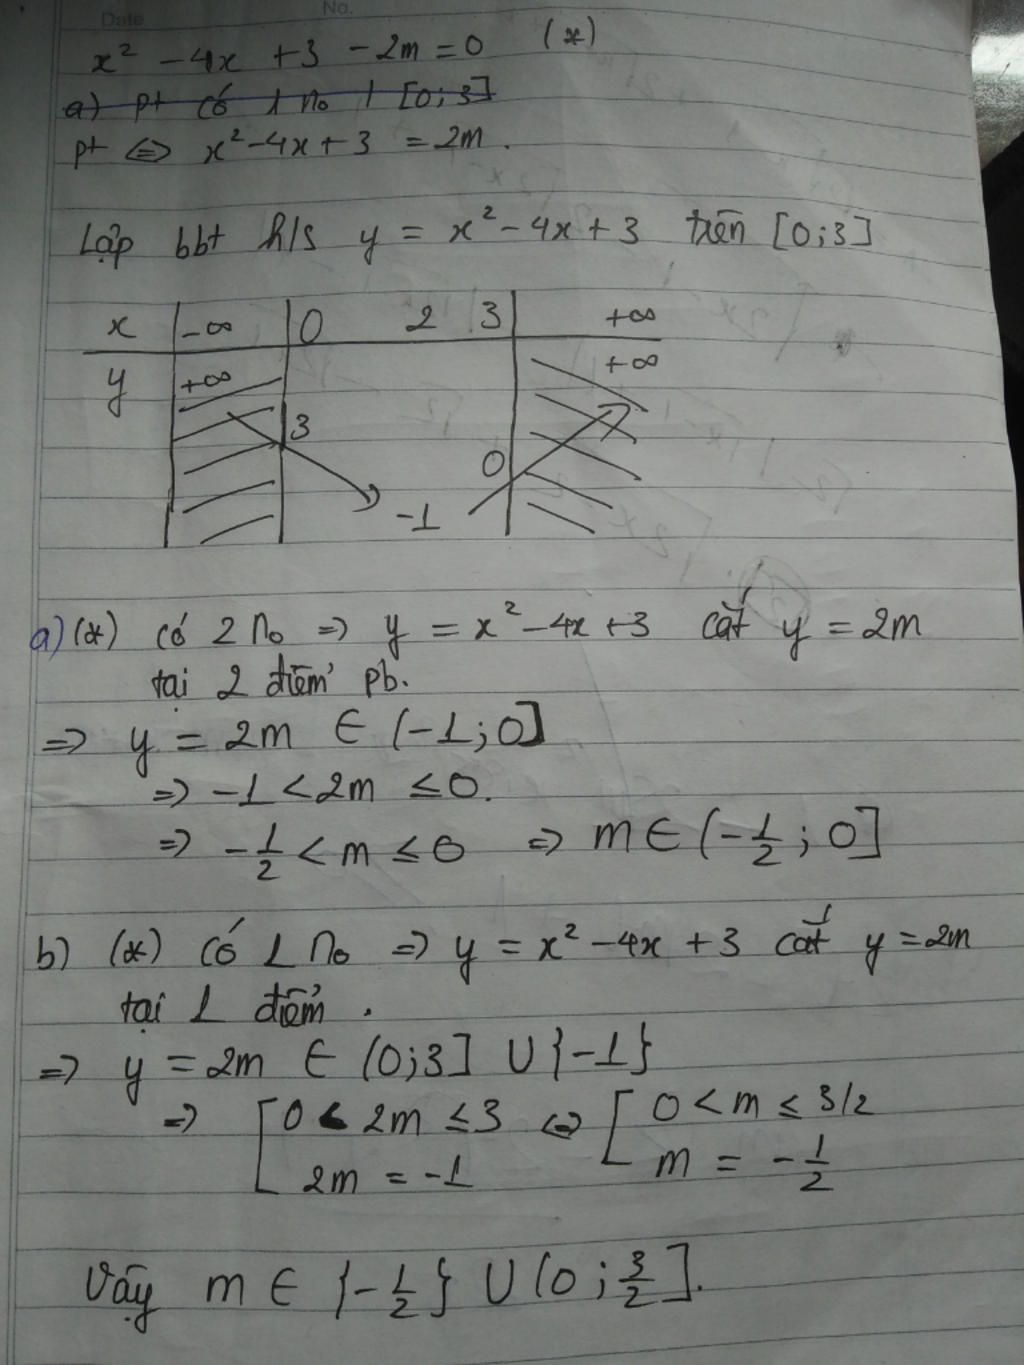 Date No.
x² - 4x + 3 - 2m = 0 (*)
a) pt có 1 no t [0;3]
pt <=> x² - 4x + 3 = 2m.
Lập bbt h/s y = x² - 4x + 3 trên [0;3]
x -∞ 0 2 3 +∞
y +∞ +∞
3
0
-1
a) (*) có 2 no => y = x² - 4x + 3 cắt y = 2m
tại 2 điểm pb.
=> y = 2m ∈ (-1;0]
=> -1 < 2m ≤ 0.
=> -1/2 < m ≤ 0 => m ∈ (-1/2; 0]
b) (*) có 1 no => y = x² - 4x + 3 cắt y = 2m
tại 1 điểm.
=> y = 2m ∈ (0;3] ∪ {-1}
=> [ 0 < 2m ≤ 3 <=> [ 0 < m ≤ 3/2
2m = -1 m = -1/2
Vậy m ∈ {-1/2} ∪ (0; 3/2].